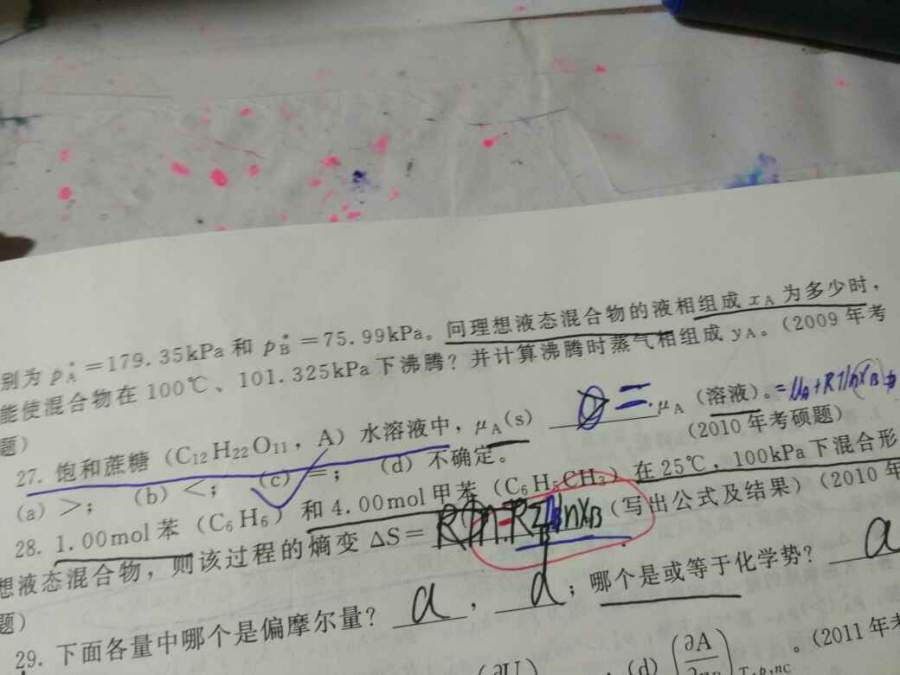 别为 p*A =179.35kPa 和 p*B =75.99kPa。问理想液态混合物的液相组成 xA 为多少时，
能使混合物在 100℃、101.325kPa 下沸腾？并计算沸腾时蒸气相组成 yA。（2009 年考
题）
27. 饱和蔗糖（C12H22O11，A）水溶液中，μA(s) = μA（溶液）。
(a) >； (b) <； (c) =； (d) 不确定。 （2010 年考硕题）
28. 1.00mol 苯（C6H6）和 4.00mol 甲苯（C6H5CH3）在 25℃，100kPa 下混合形
想液态混合物，则该过程的熵变 ΔS= （写出公式及结果）（2010 年
题）
29. 下面各量中哪个是偏摩尔量？ a ， d ；哪个是或等于化学势？ a
(d) (∂A T,p,nC 。（2011 年考